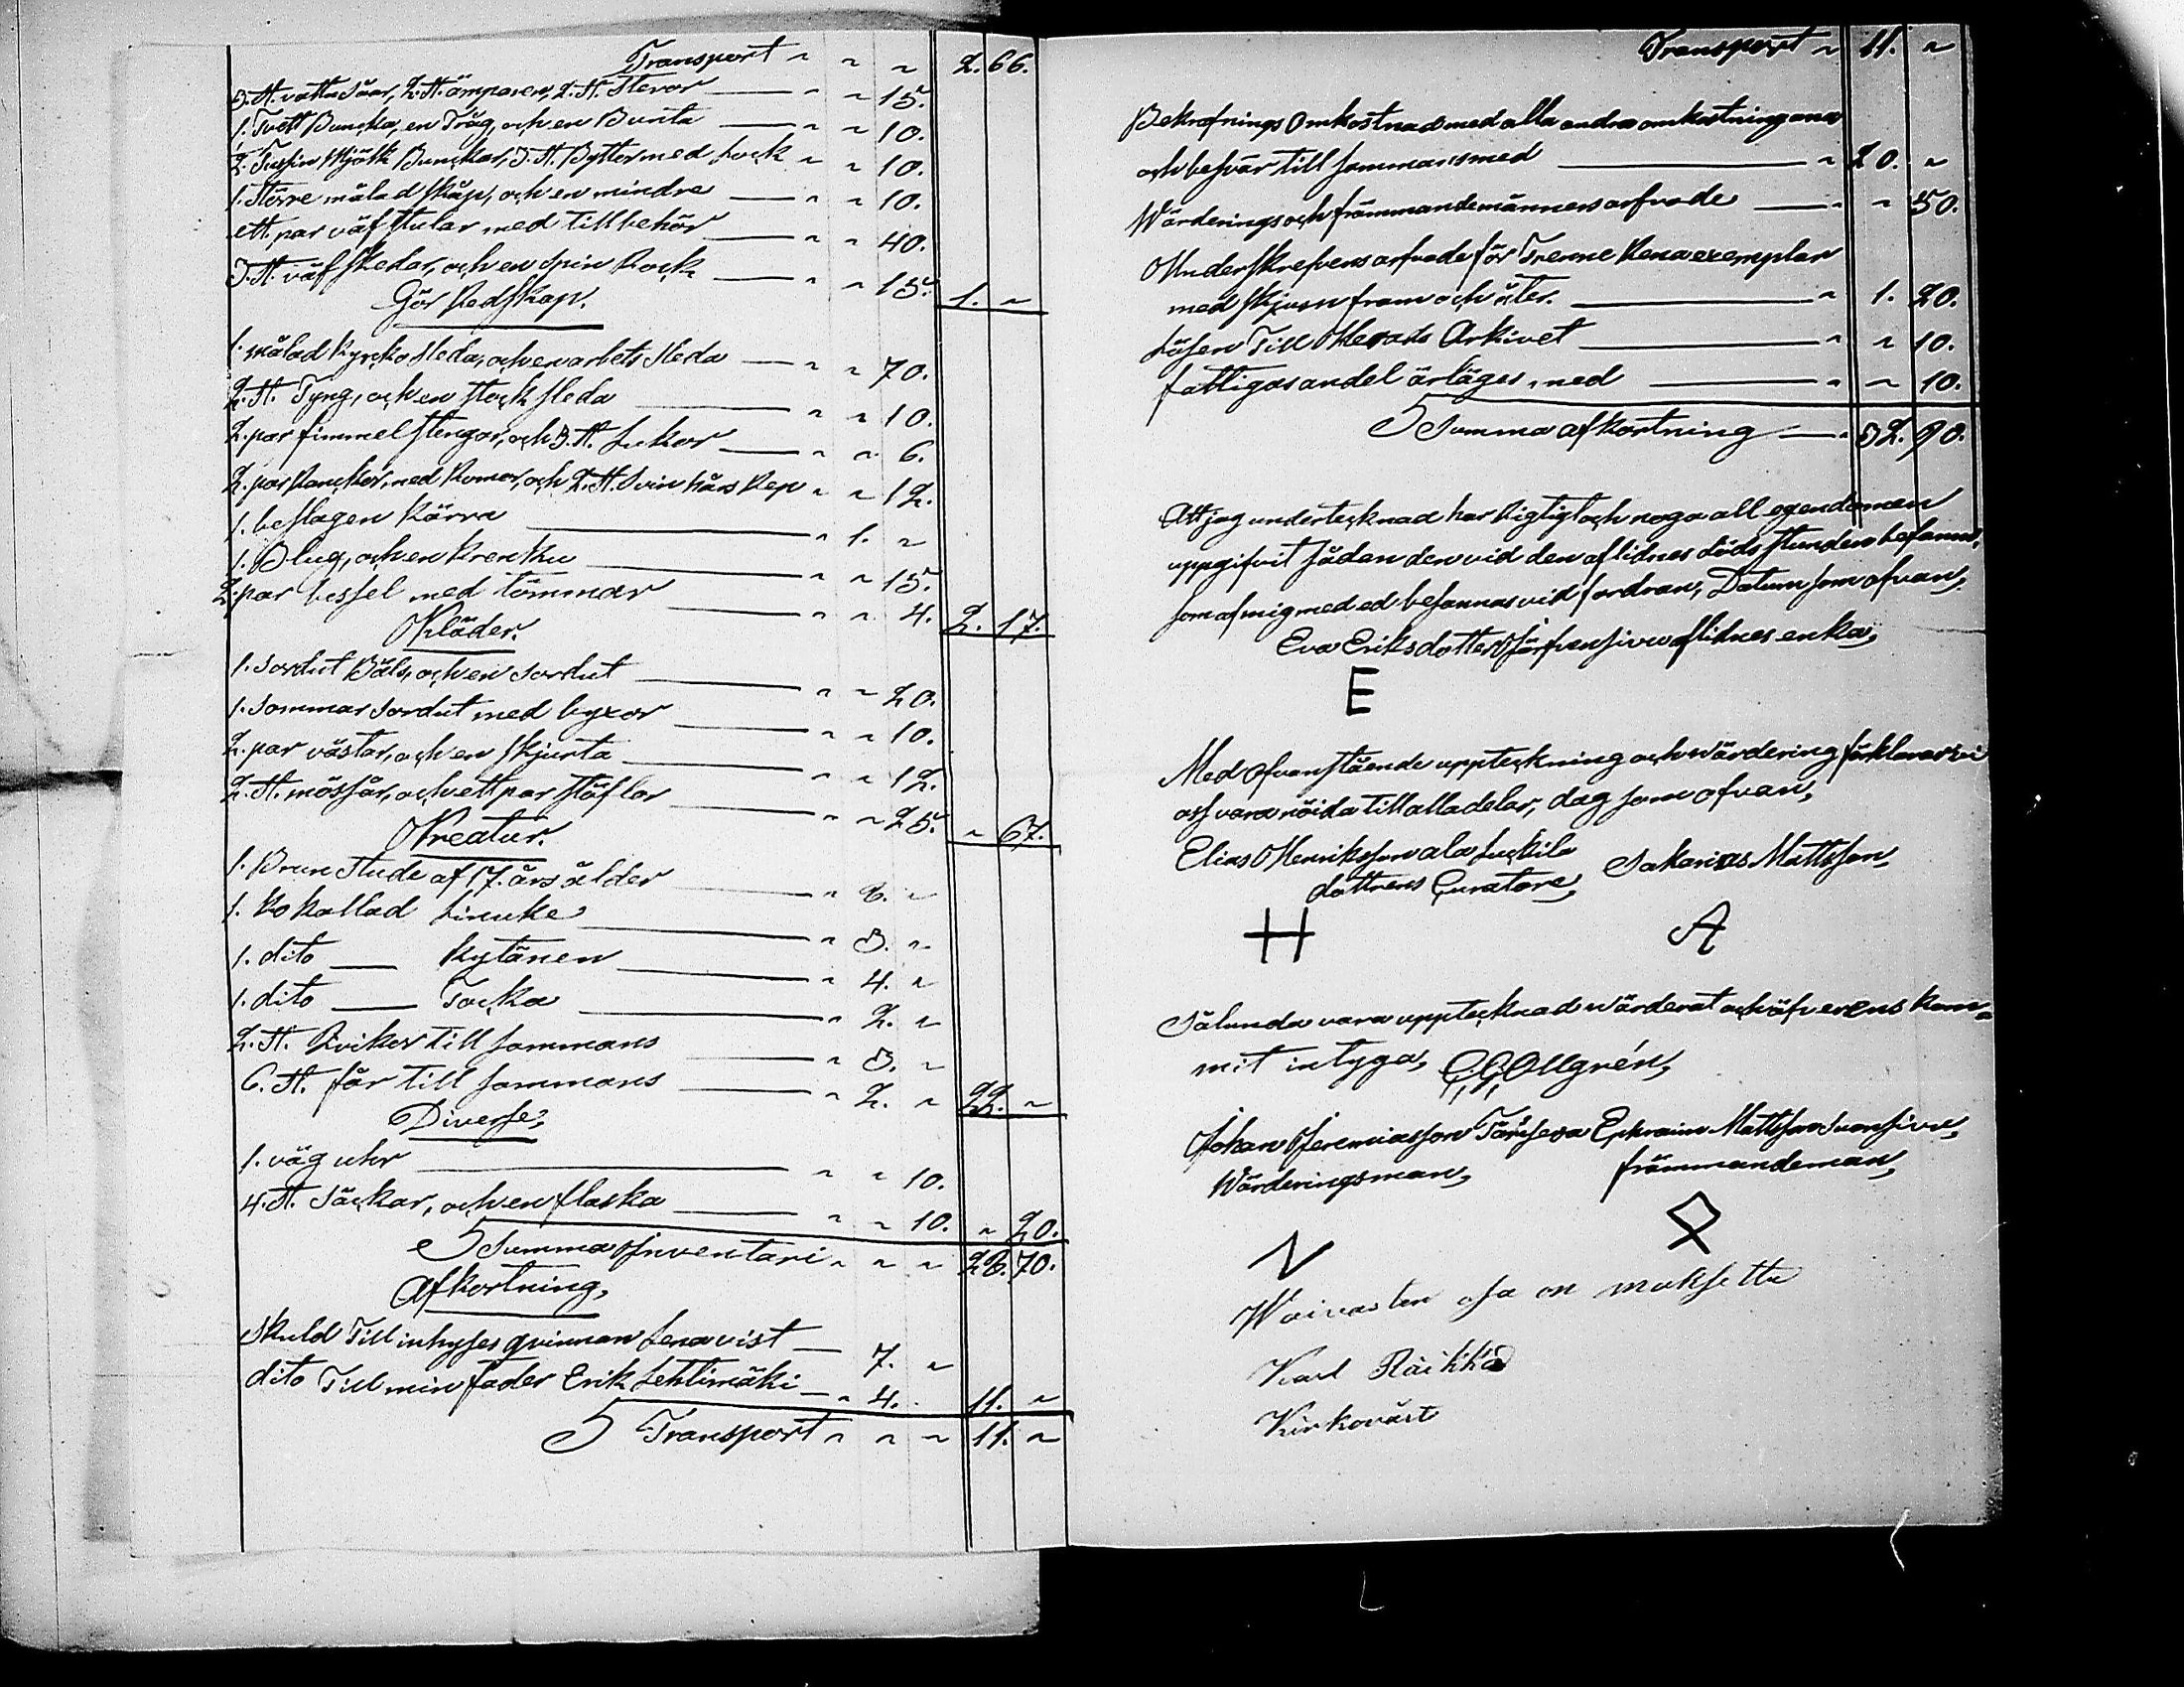 Transport " " " 2. 66.
3. st. vattu såar, 2. st. ämpar en, 2. st. Stevor — " " 15.
1. Tvett Buncka, en Tråg, och en Bunta — " " 10.
2. Tussin Mjölk Bunckar, 3. st. Byttor med Lock " " 10.
1. Större målad skåp, och en mindre — " " 10.
ett. par väfstular med tillbehör — " " 40.
3. st. väf skedar, och en Spin Rock — " " 15. 1. "
Gör Redskap.
1. målad Kyrcko Sleda, och en arbets Sleda — " " 70.
2. st. Tyng, och en stock sleda — " " 10.
2. par fimmel stengar, och 3. st. Lukor — " " 6.
2. par Ranckor, med Romor, och 2. st. Svin hårs Rep " " 12.
1. beslagen Kärra — " 1. "
1. Plug, och en Krenku — " " 15.
2. par bessel med tömmar — " " 4. 2. 17.
Kläder.
1. Sordut Päls, och en Sordut — " " 20.
1. Sommar Sordut med byxor — " " 10.
2. par västar, och en skjurta — " " 12.
2. st. mössår, och ett par stöflor — " " 25. " 67.
Kreatur.
1. Brun Stude af 17. års ålder — " 8. "
1. Ko kallad Linuke — " 3. "
1. dito — Kytänen — " 4. "
1. dito — Tocka — " 2. "
2. st. Qvikor till sammans — " 3. "
6. st. får till sammans — " 2. " 22. "
Diverse,
1. väg uhr — " " 10.
4. st. Säckar, och en flaska — " " 10. " 20.
Summa Inventari " " " 28. 70.
Afkortning,
Skuld Till inhyses qvinnan Lena vist — 7. "
dito Till min fader Erik Lehtimäki — " 4. 11. "
Transport " " " 11. "
Transport " 11. "
Bekrafnings Omkostnad med alla andra omkostningana
och besvär till sammans med — " 20. "
Wärderings och främmandemännens arfvode — " " 50.
Underskrefvens arfvode för Trenne Rena exemplar
med skjuss fram och åter. — " 1. 20.
Lösen Till Herads Arkivet — " " 10.
fattigas andel ärläges, med — " " 10.
Summa afkortning — " 32. 90.
Att jag undertecknad har Rigtigt och noga all egendomen
uppgifvit sådan den vid den aflidnes döds stunden befanns,
som af mig med ed besannas vid fordran, Datum som ofvan,
Eva Eriksdotter Järfvensivu aflidnes enka,
E
Med Ofvanstående uppteckning och wärdering förklaras vi
oss vara nöida till alla delar, dag som ofvan,
Elias Henriksson ala Luckila Sakarias Mattsson,
dottrens Curatore,
H A
Sålunda vara upptecknad wärderat och öfverens kom-
mit intyga, C.G. Ollgrén,
Johan Jeremiasson Efraim Mattsson Suonsivu,
Wärderingsman, främmandeman,
N
Waivasten osa on maksettu
Karl Räikkä
Kirkovärt